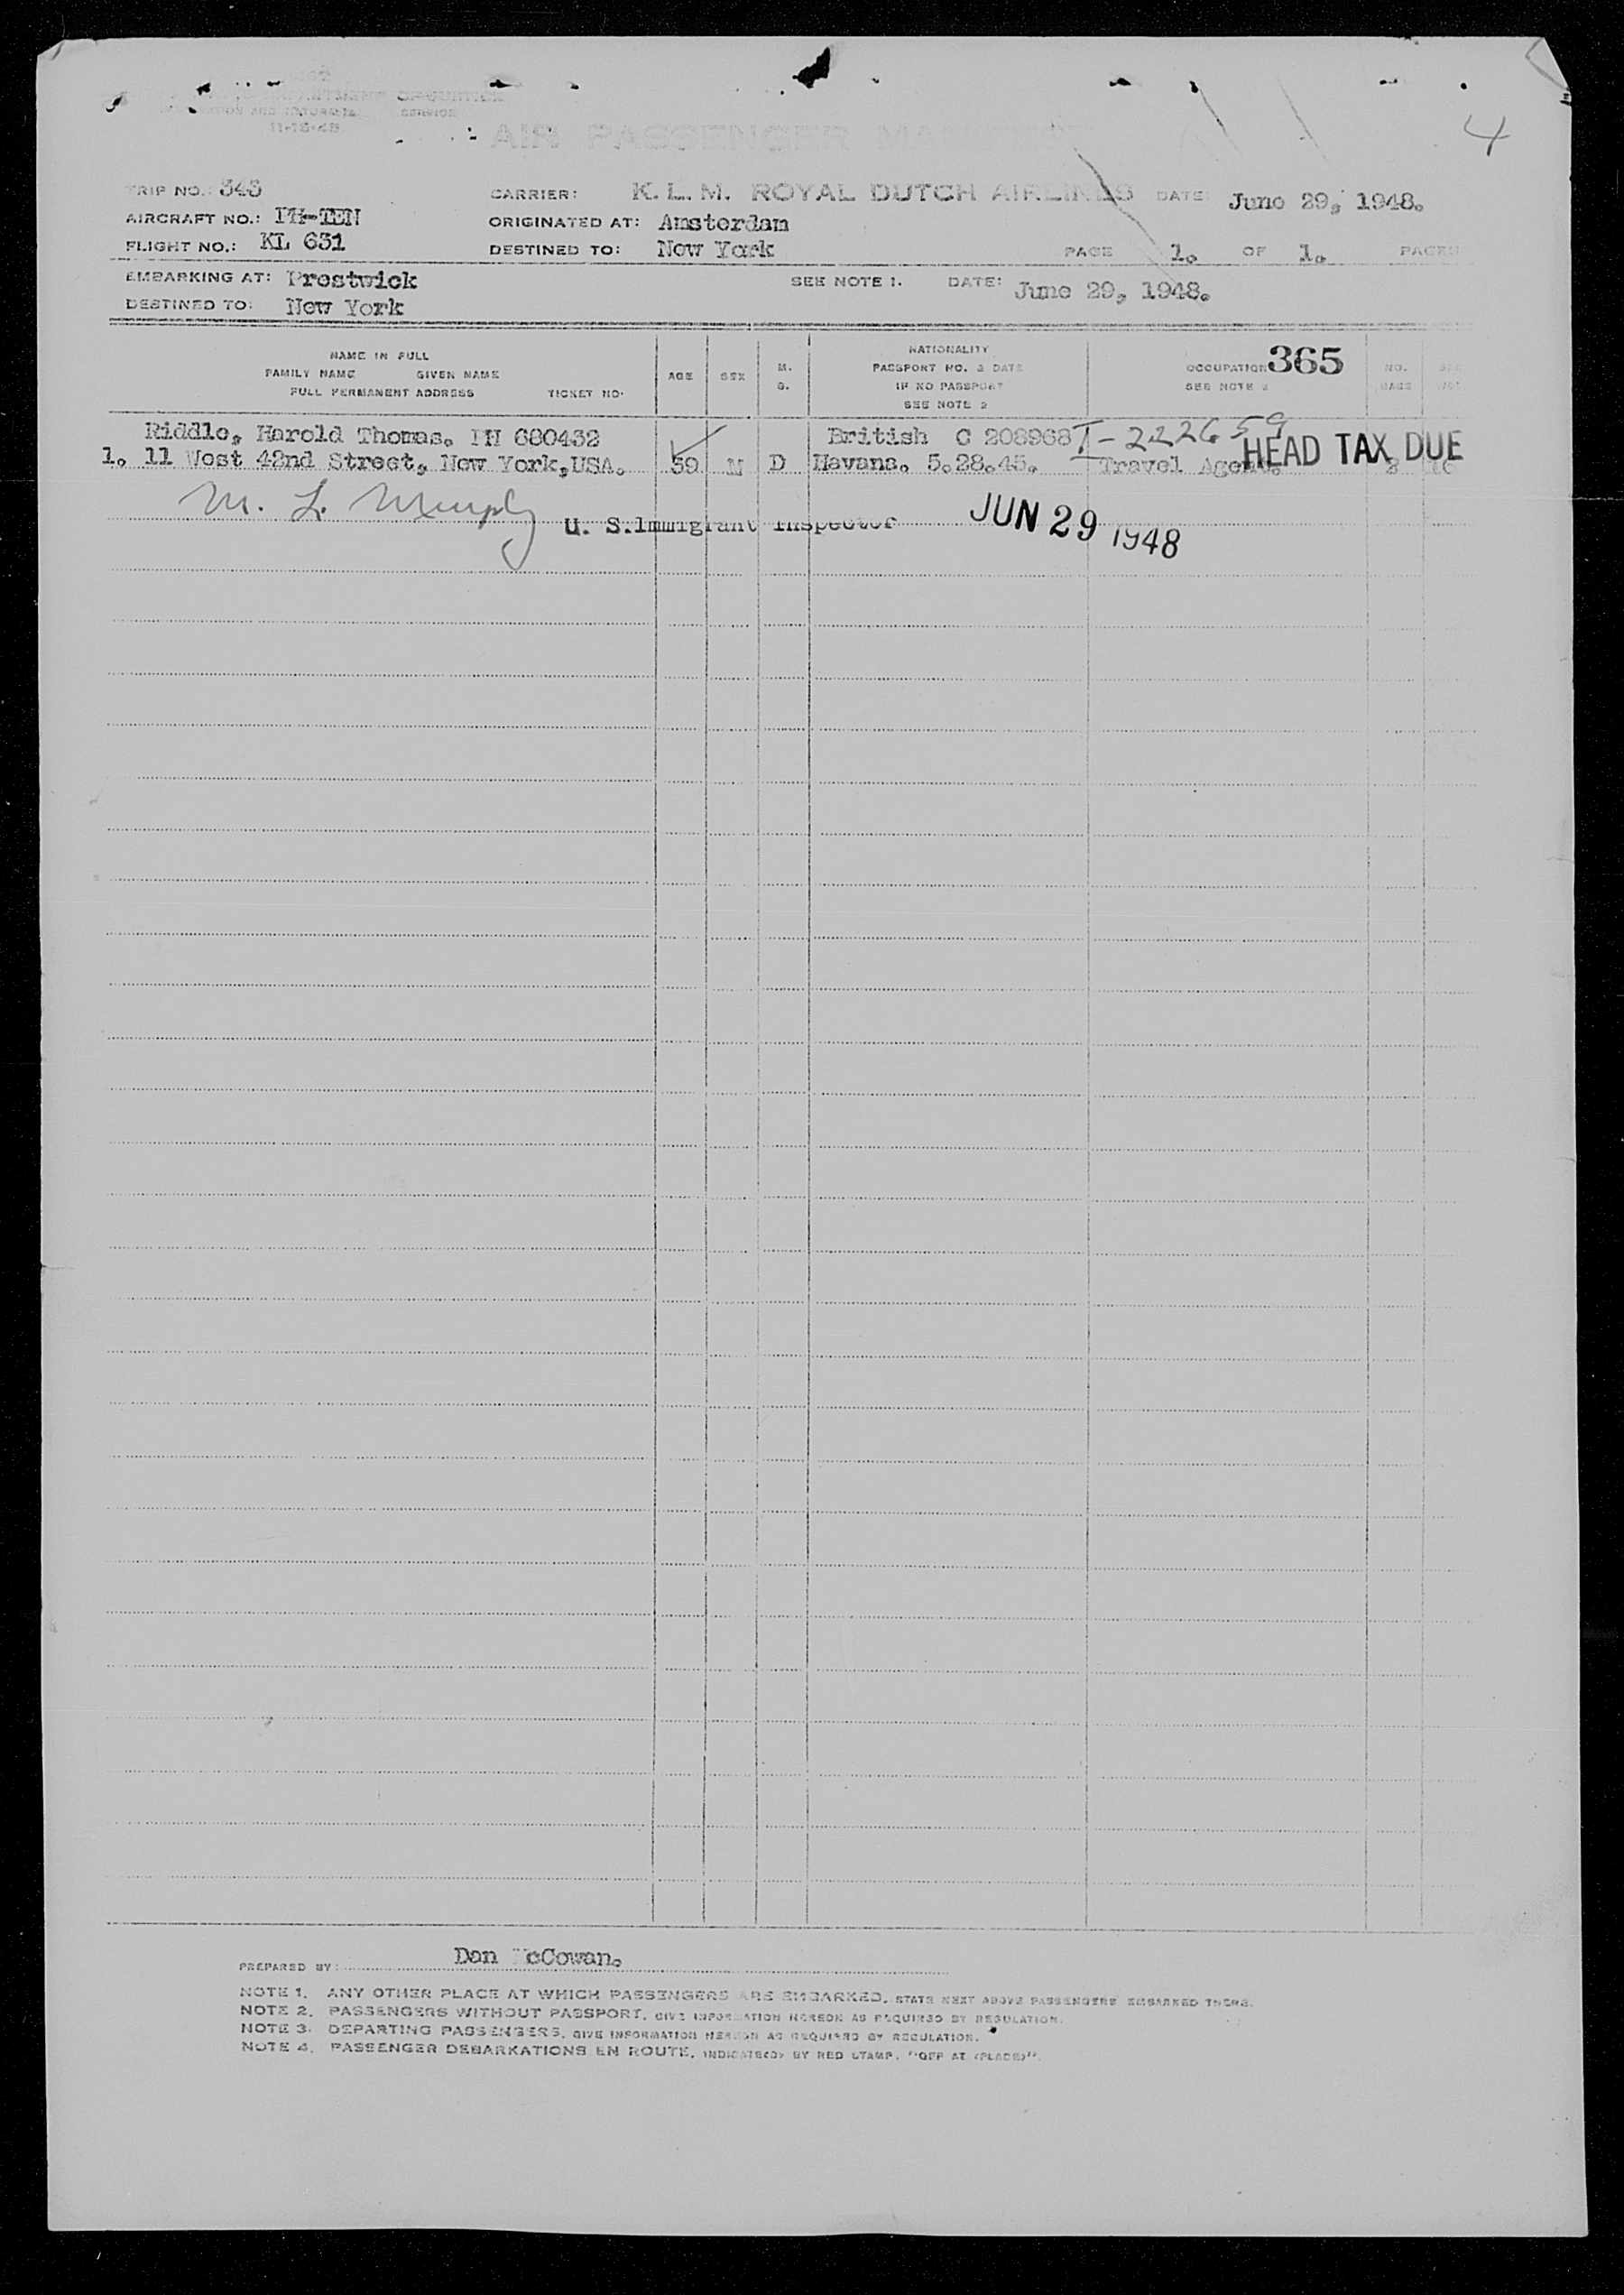 AIR PASSENGER
4
TRIP NO.: 343
CARRIER: K.L.M. ROYAL DUTCH AIRLINES DATE: June 29, 1948.
AIRCRAFT NO.: PH-TEN
ORIGINATED AT: Amsterdam
FLIGHT NO.: KL 631
DESTINED TO: New York
PAGE 1. OF 1. PAGES
EMBARKING AT: Prestwick
SEE NOTE 1. DATE: June 29, 1948.
DESTINED TO: New York
NAME IN FULL
FAMILY NAME GIVEN NAME
FULL PERMANENT ADDRESS TICKET NO.
AGE
SEX
M.
S.
NATIONALITY
PASSPORT NO. & DATE
IF NO PASSPORT
SEE NOTE 2
OCCUPATION 365
SEE NOTE
NO.
BAGS
Riddle, Harold Thomas. PH 680432 British C 208968 T-222659
1. 11 West 42nd Street, New York, USA. 59 M D Havana. 5.28.45. Travel Agent. HEAD TAX DUE
M. L. Murphy
U. S. Immigrant Inspector JUN 29 1948
PREPARED BY: Dan McCowan.
NOTE 1. ANY OTHER PLACE AT WHICH PASSENGERS ARE EMBARKED, STATE NEXT ABOVE PASSENGERS EMBARKED THERE.
NOTE 2. PASSENGERS WITHOUT PASSPORT, GIVE INFORMATION HEREON AS REQUIRED BY REGULATION.
NOTE 3. DEPARTING PASSENGERS, GIVE INFORMATION HEREON AS REQUIRED BY REGULATION.
NOTE 4. PASSENGER DEBARKATIONS EN ROUTE, INDICATE(D) BY RED STAMP, "OFF AT (PLACE)".